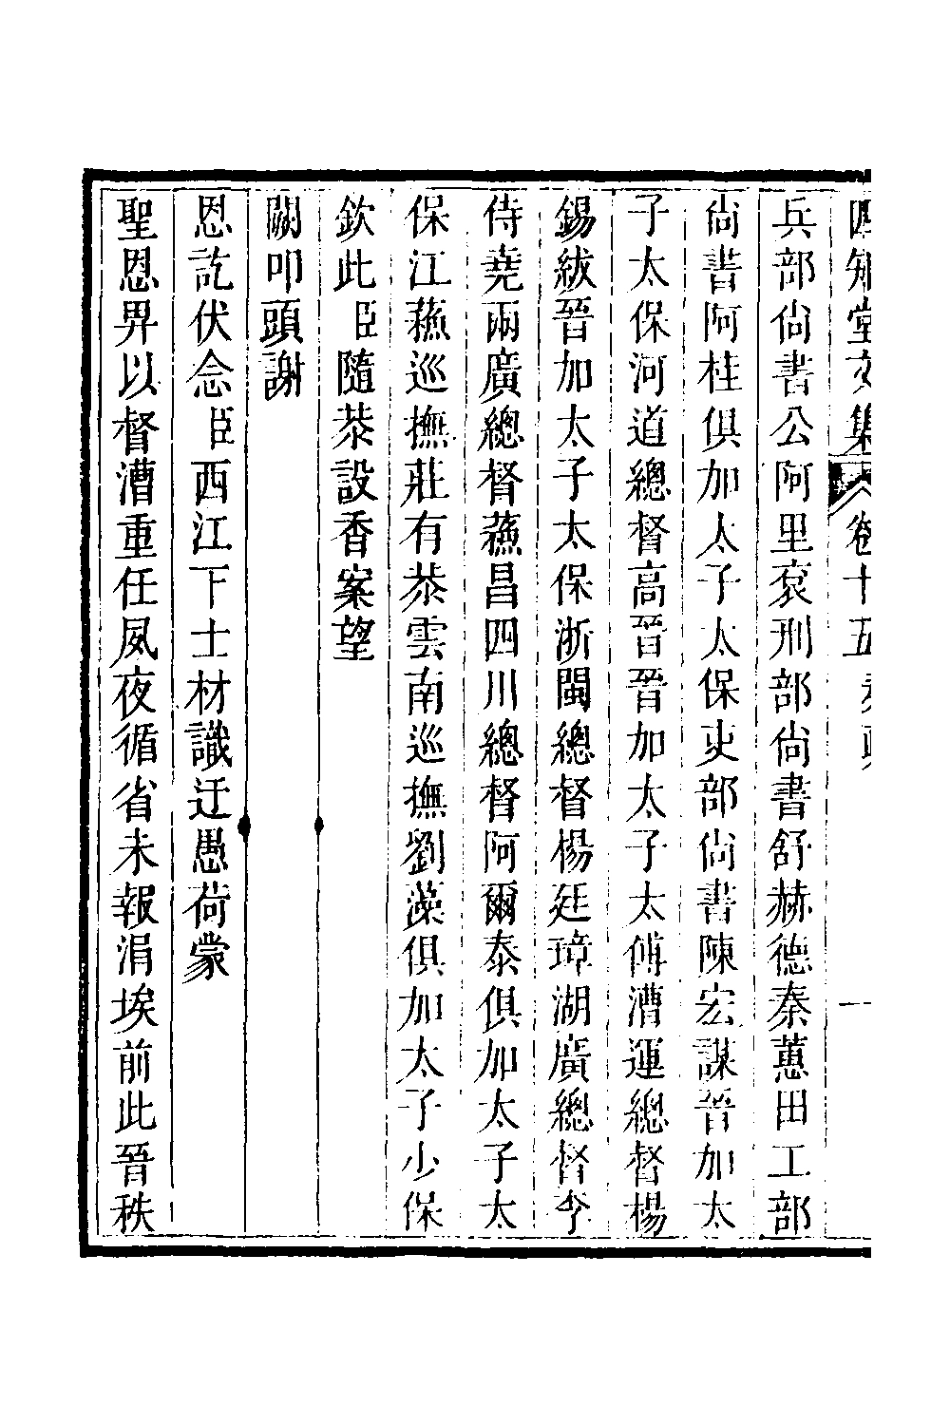 四知堂文集 卷十五 奏疏 一
兵部尙書公阿里衮刑部尙書舒赫德秦蕙田工部
尙書阿桂俱加太子太保吏部尙書陳宏謀晉加太
子太保河道總督高晉晉加太子太傅漕運總督楊
錫紱晉加太子太保浙閩總督楊廷璋湖廣總督李
侍堯兩廣總督蘓昌四川總督阿爾泰俱加太子太
保江蘓巡撫莊有恭雲南巡撫劉藻俱加太子少保
欽此臣隨恭設香案望
闕叩頭謝
恩訖伏念臣西江下士材識迂愚荷蒙
聖恩畀以督漕重任夙夜循省未報涓埃前此晉秩